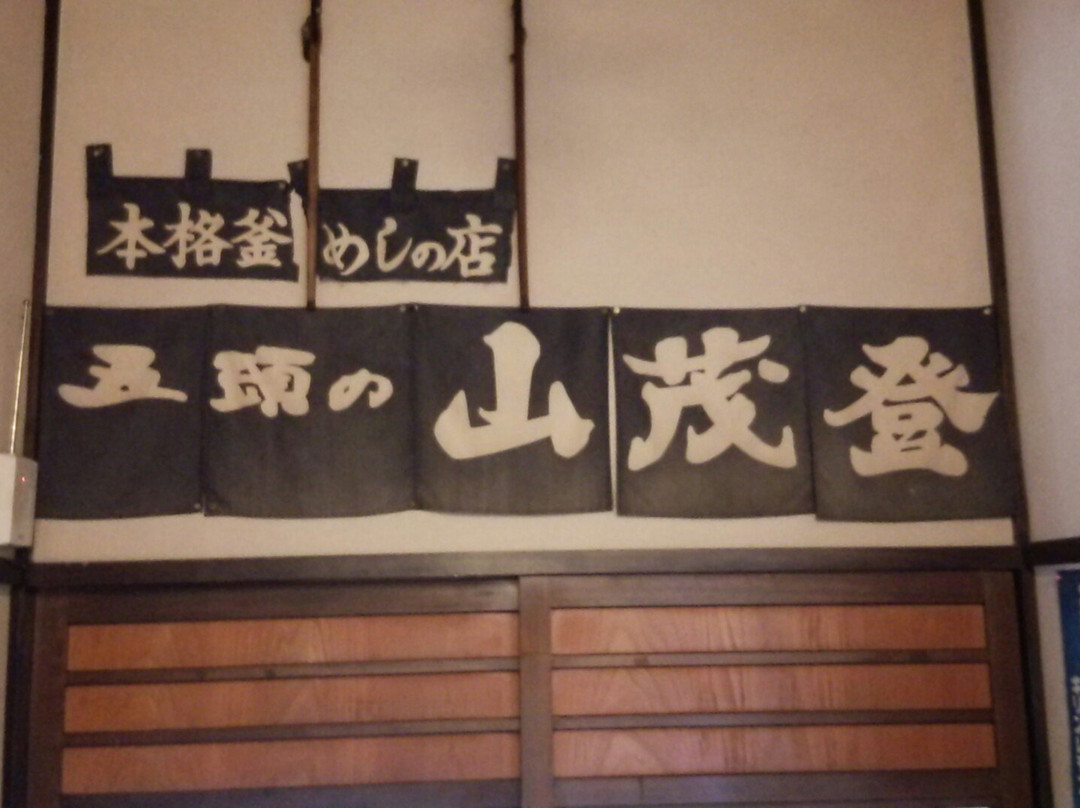 本格釜めしの店
五頭の山茂登